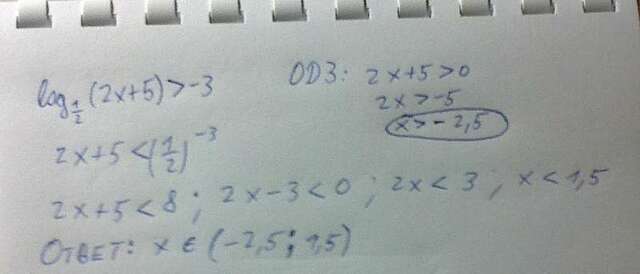 log½(2x+5)>-3
ОДЗ: 2x+5>0
2x>-5
x>-2,5
2x+5<(1/2)^-3
2x+5<8; 2x-3<0; 2x<3; x<1,5
Ответ: x ∈ (-2,5; 1,5)